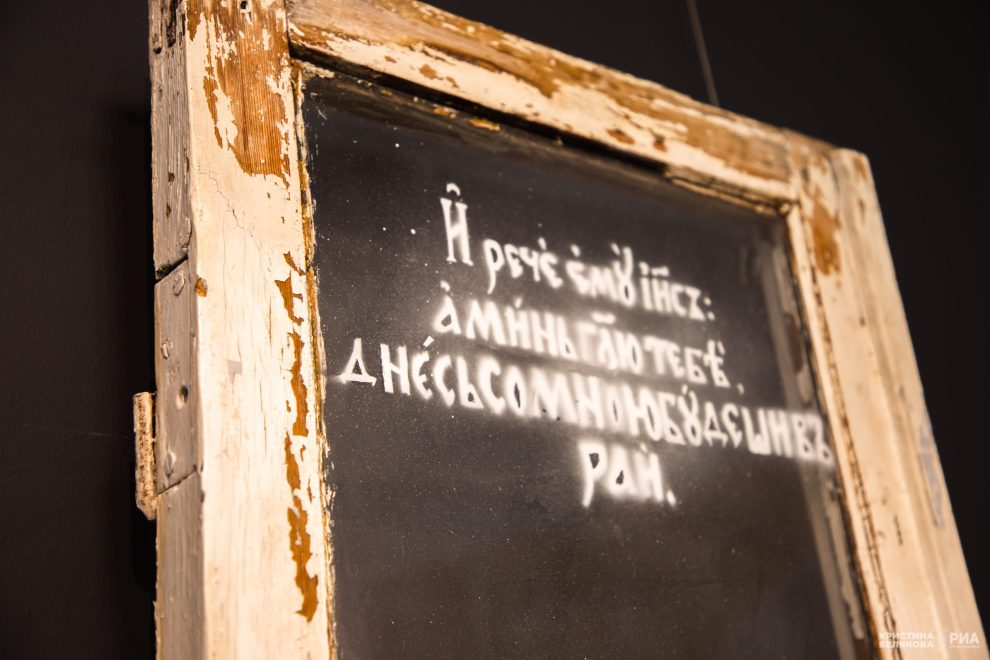 И҆ рече́ є҆мꙋ̀ і҆и҃съ:
а҆ми́нь гл҃ю тебѣ̀,
дне́сь со мно́ю бꙋ́деши въ
раѝ.
КРИСТИНА
БЕЛЯКОВА
РИА